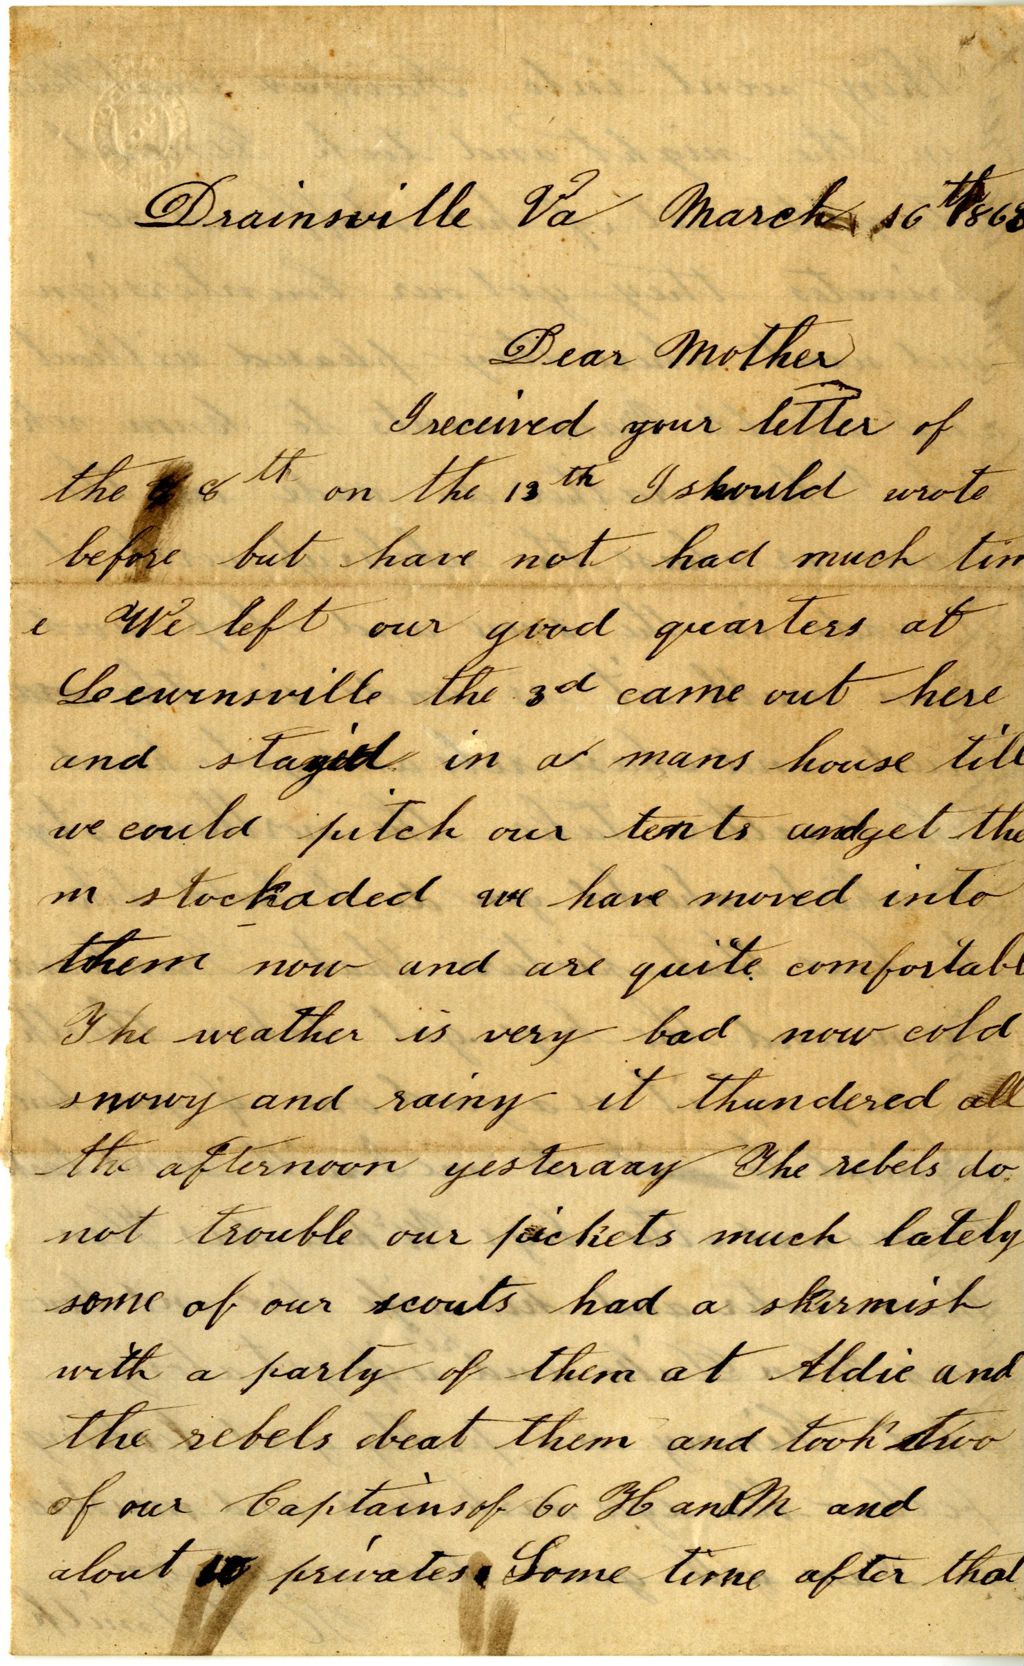 Drainsville Va March 16th 1863
Dear Mother
I received your letter of
the 8th on the 13th I should wrote
before but have not had much tim
e We left our good quarters at
Lewinsville the 3d came out here
and stayid in a mans house till
we could pitch our tents and get the
m stockaded we have moved into
them now and are quite comfortabl
The weather is very bad now cold
snowy and rainy it thundered all
the afternoon yesterday The rebels do
not trouble our pickets much lately
some of our scouts had a skirmish
with a party of them at Aldie and
the rebels beat them and took two
of our Captains of Co H and M and
about 10 privates. Some time after that